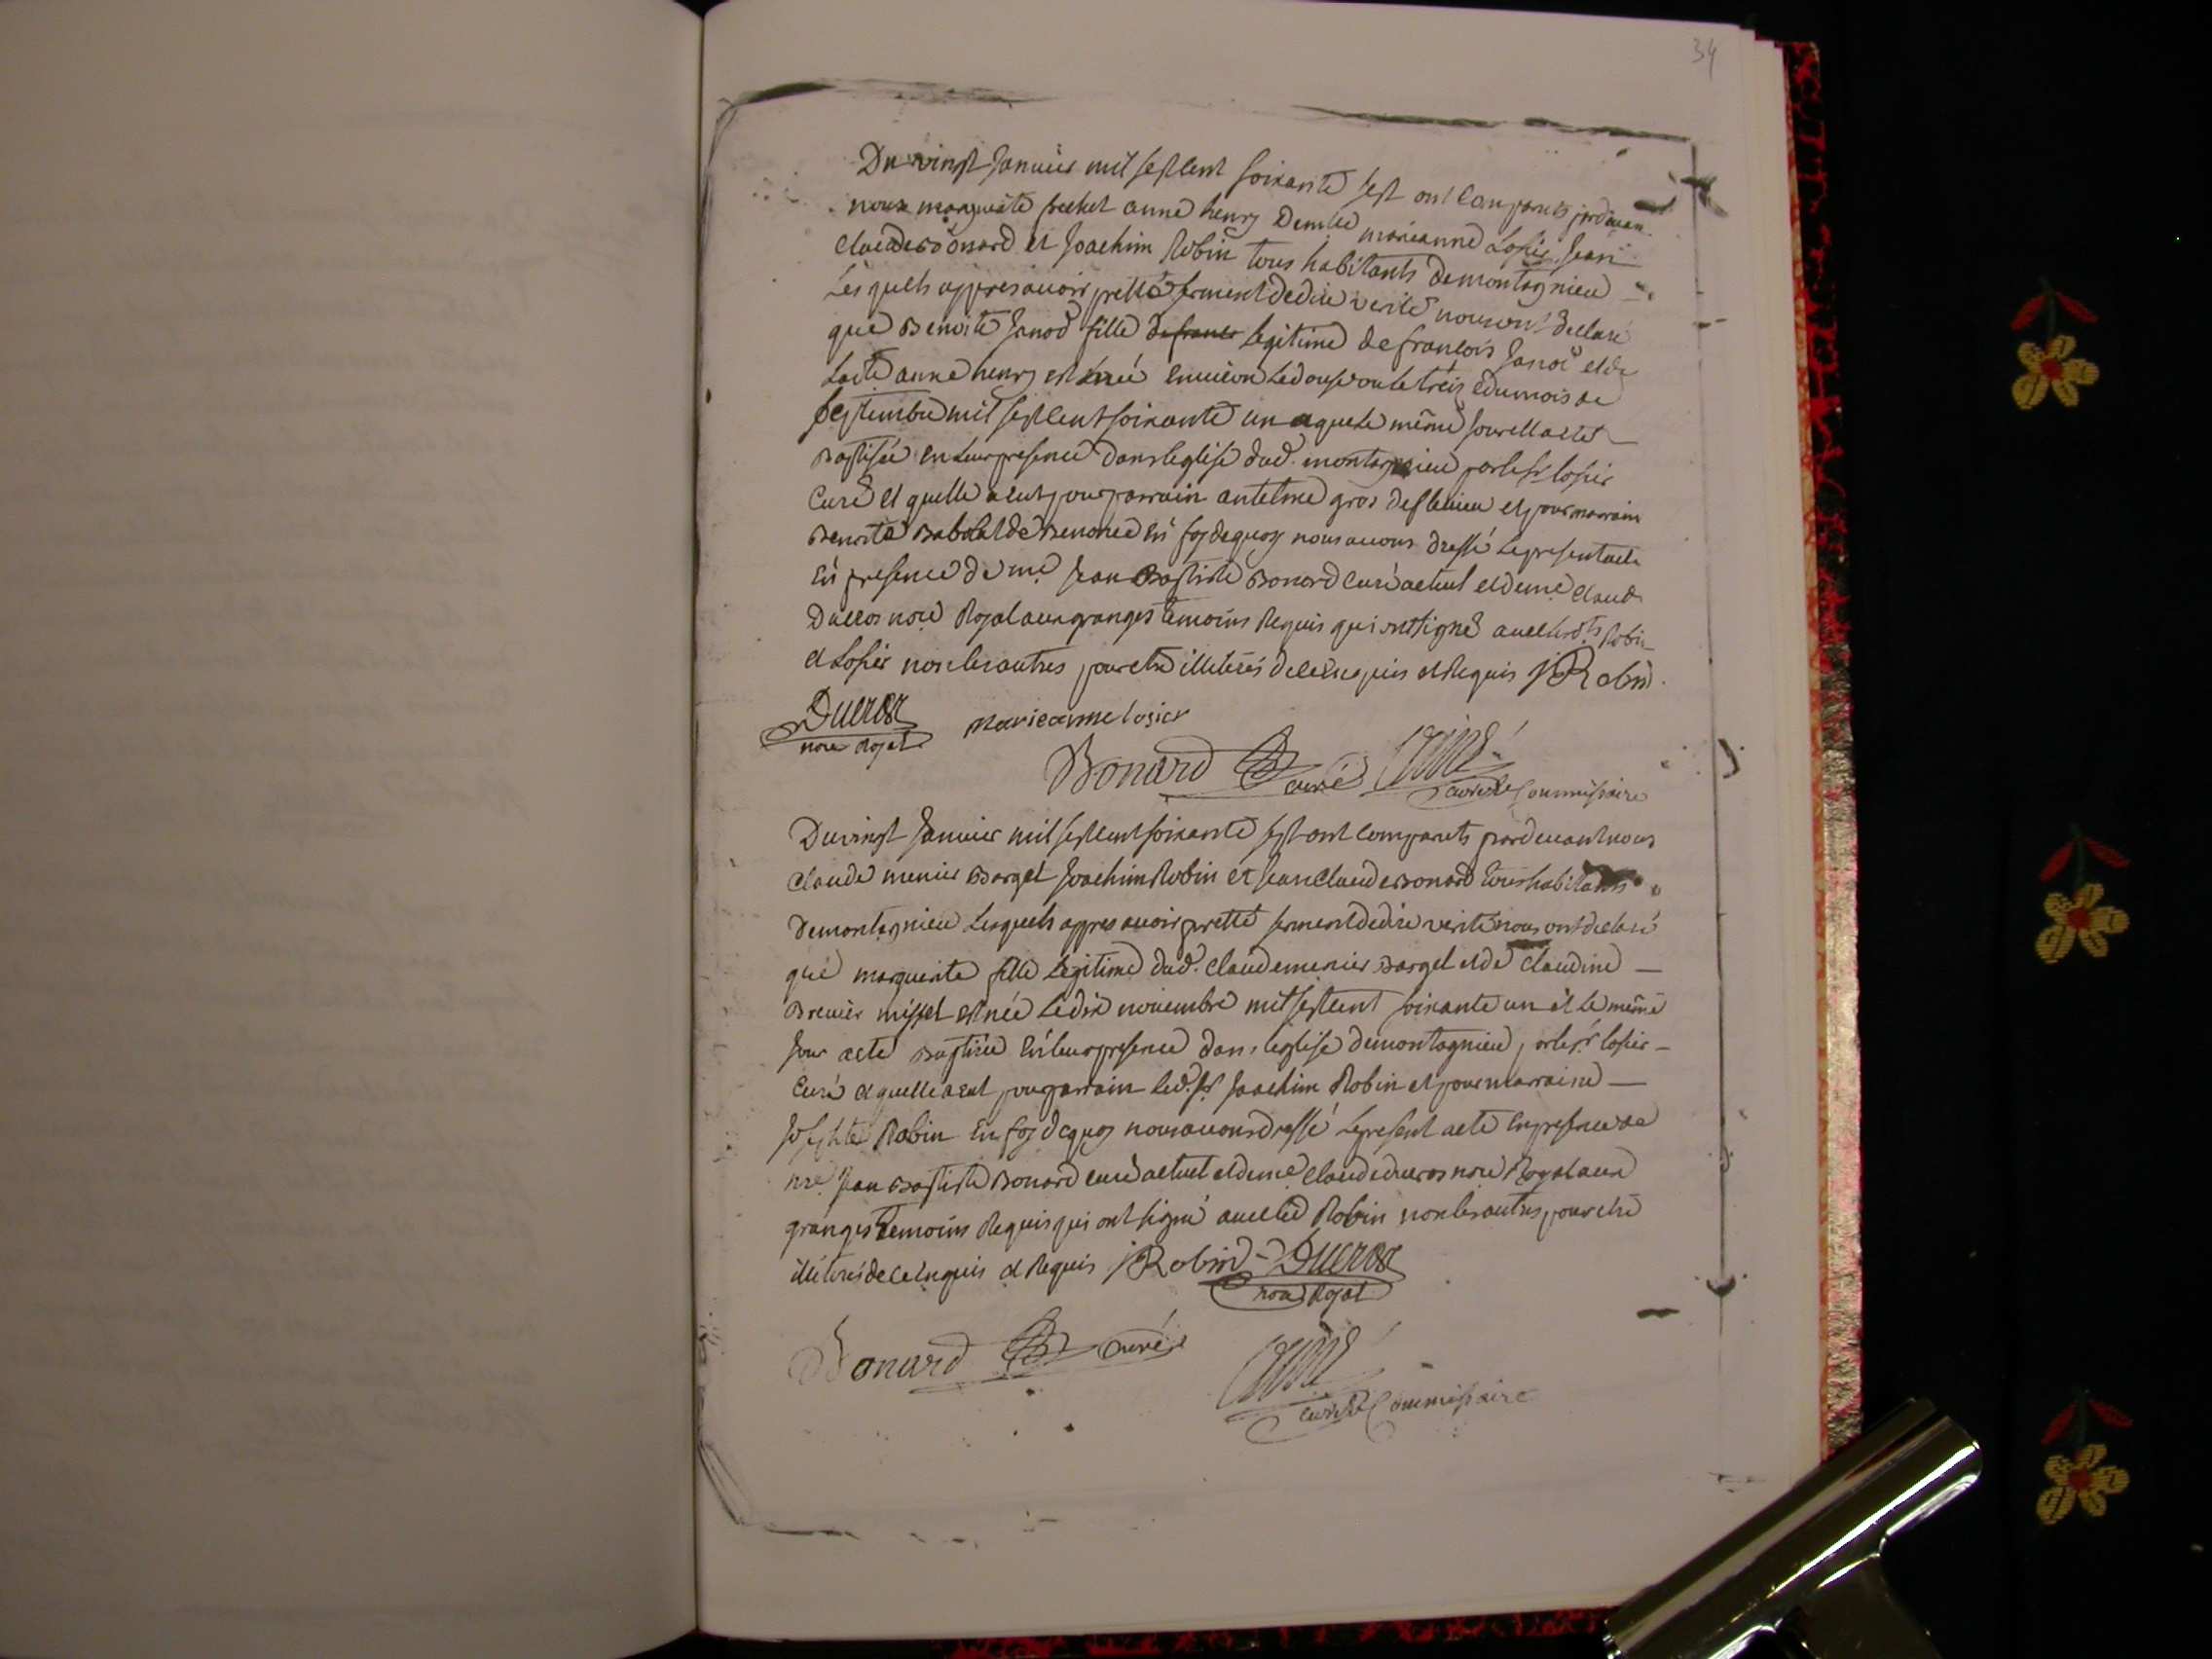 34
Du vingt Janvier mil sept cent soixante sept ont comparuts pardevan
nous marguerite pochet anne henry Demlle marieanne Losier Jean
Claude Bonard et Joachim Robin tous habitants de montagnieu
Lesquels appres avoir pretté serment de dire verité nous ont declaré
que Benoite Janod fille de francs Legitime de francois Janod et de
Ladte anne henry est née environ Le douse ou le treize du mois de
septembre mil sept cent soixante un aque Le même jour elle a eté
Baptisée en Leur presence dans leglise dud. montagnieu par le sr losier
Curé et quelle a eut pour parrain antelme gros de flevieu et pour marrain
Benoite de Benonce en foy de quoy nous avons dressé Le present acte
En presence de me Jean Baptiste Bonard curé actuel et de me Claude
Ducros nore Royal aux granges temoins Requis qui ont signé avec Lesdts Robin
et Losier non les autres pour etre illiterés de ce enquis et Requis J Robin
Ducros marieanne losier
nore Royal
Bonard curé
curé Commissaire
Du vingt Janvier mil sept cent soixante sept ont comparuts pardevant nous
Claude menier Barget Joachim Robin et Jean Claude Bonard tous habitants
de montagnieu Lesquels appres avoir pretté serment de dire verité nous ont declaré
que marguerite fille Legitime dud. Claude menier Barget et de Claudine
Brevier misset est née Le dix novembre mil sept cent soixante un et Le même
Jour a eté Baptisée En leur presence dans leglise de montagnieu par le sr losier
Curé et quelle a eut pour parrain Led. sr Joachim Robin et pour marraine
Josephte Robin En foy de quoy nous avons dressé Le present acte En presence de
me Jean Baptiste Bonard curé actuel et de me Claude ducros nore Royal aux
granges temoins Requis qui ont signé avec led Robin non les autres pour etre
illiterés de ce Enquis et Requis J Robin Ducros
nore Royal
Bonard curé
curé Commissaire